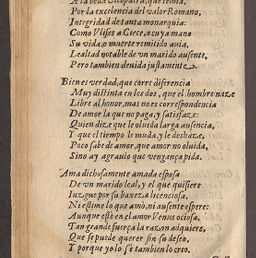 A la bella Cleopatra, que temia,
Por la excelencia del valor Romano,
Integridad de tanta monarquia:
Como Vlises a Circe, a cuya mano
Su vida, o muerte remitido auia,
Lealtad notable de vn marido ausente,
Pero tambien deuida justamente.
Bien es verdad, que corre diferencia
Muy distinta en los dos, que el hombre naze
Libre al honor, mas no es correspondencia
De amor la que no paga, y satisfaze:
Quien dize que le oluida larga ausencia,
Y que el tiempo le muda, y le deshaze,
Poco sabe de amor, que amor no oluida,
Sino ay agrauio que vengança pida.
Ama dichosamente amada esposa
De vn marido leal, y el que quisiere
Iuzgar por su baxeza licenciosa,
Ni estime lo que amò, ni ausente espere:
Aunque esté en el amor Venus ociosa,
Tan grande fuerça la razon adquiere,
Que se puede querer sin su deseo,
Y porque yo lo se tambien lo creo.